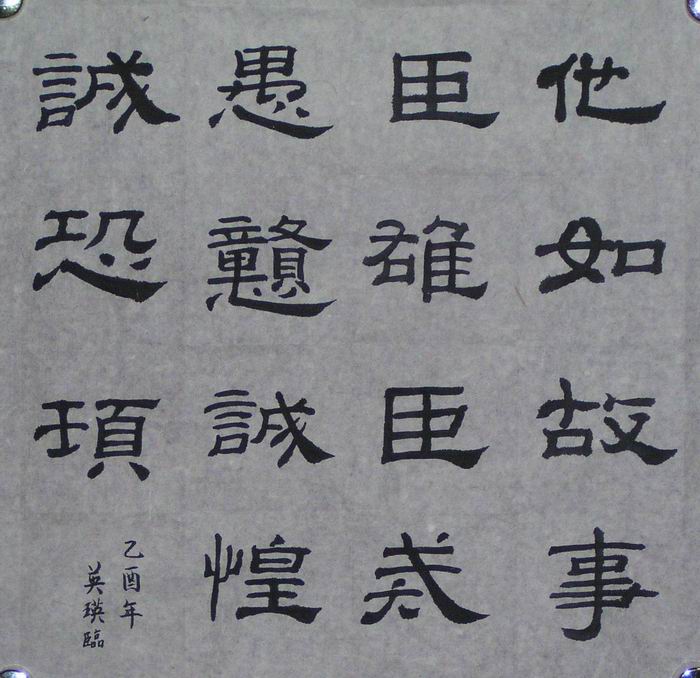 他如故事
臣雄臣戒
愚戇誠惶
誠恐頓
乙酉年
英瑛臨